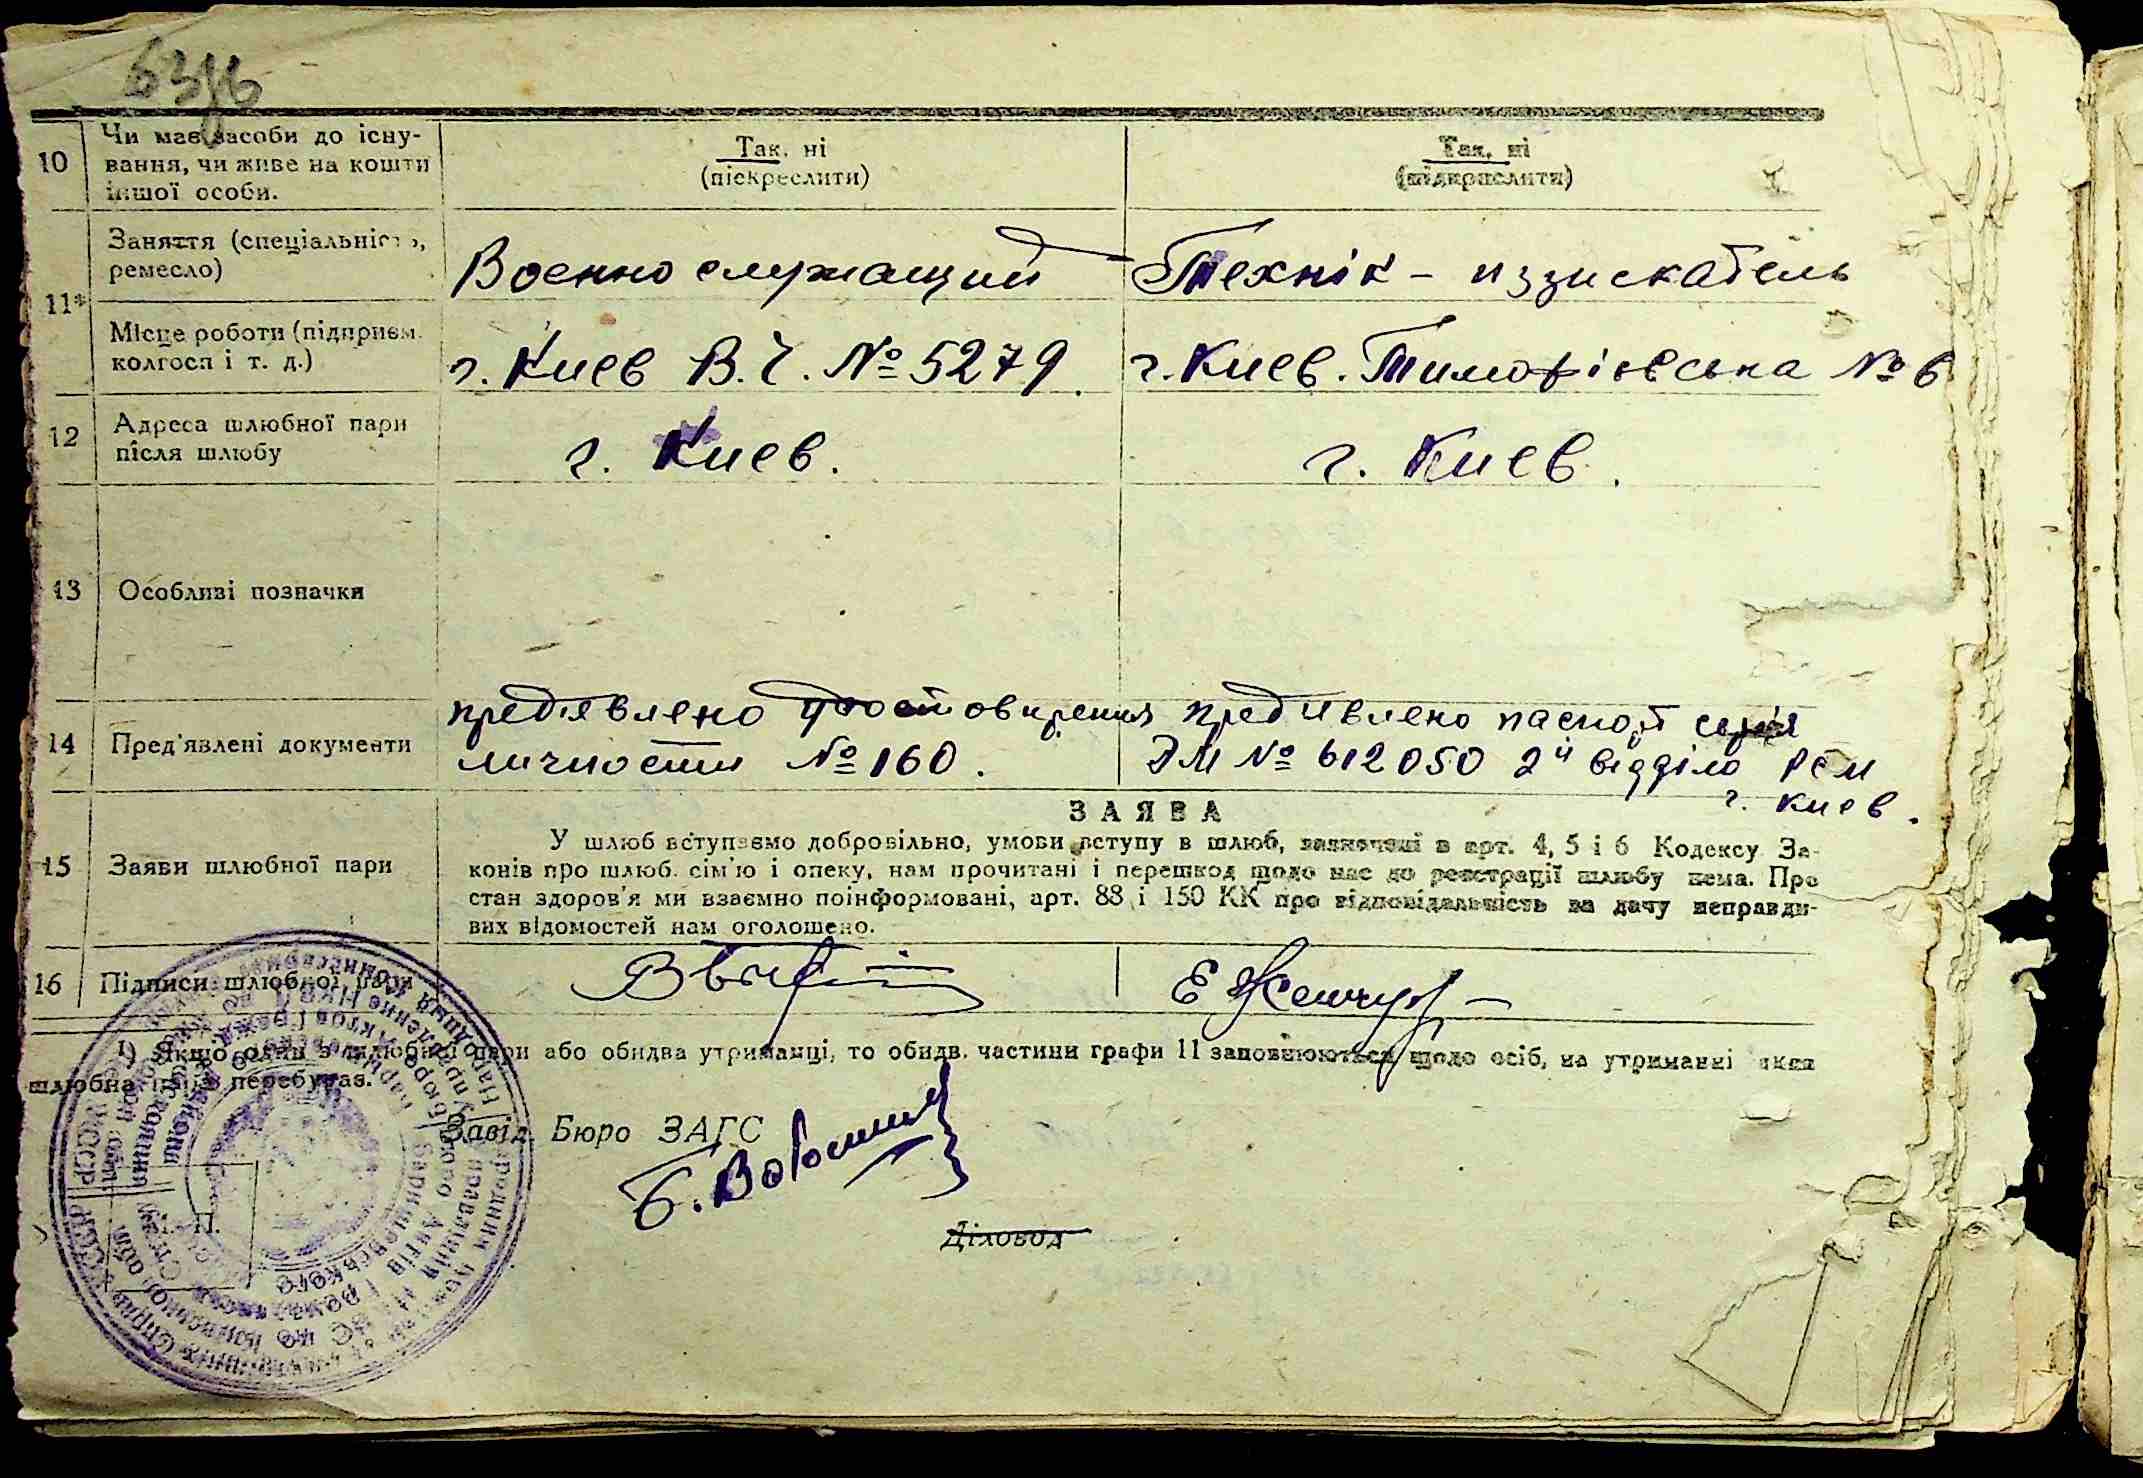 10 Чи має засоби до існу-
вання, чи живе на кошти
іншої особи.
Так, ні
(піскреслити)
Так, ні
(підкреслити)
11*
Заняття (спеціальність,
ремесло)
Военнослужащий
Технік - изискатель
Місце роботи (підприєм.
колгосп і т. д.)
г. Киев В.Ч. № 5279.
г. Киев. Тимофіївська № 6
12 Адреса шлюбної пари
після шлюбу
г. Киев.
г. Киев.
13 Особливі позначки
14 Пред'явлені документи
предявлено удостовирения
личности № 160.
предявлено паспорт серія
ЭМ № 612050 2й відділо РСМ
г. Киев.
15 Заяви шлюбної пари
ЗАЯВА
У шлюб вступаємо добровільно, умови вступу в шлюб, зазначені в арт. 4, 5 і 6 Кодексу За-
конів про шлюб. сім'ю і опеку, нам прочитані і перешкод щодо нас до реєстрації шлюбу нема. Про
стан здоров'я ми взаємно поінформовані, арт. 88 і 150 КК про відповідальність за дачу неправди-
вих відомостей нам оголошено.
16 Підписи шлюбної пари
1) Якщо один з шлюбної пари або обидва утриманці, то обидв. частини графи 11 заповнюються щодо осіб, на утриманні яких
шлюбна пара перебуває.
Завід. Бюро ЗАГС
М. П.
Діловод